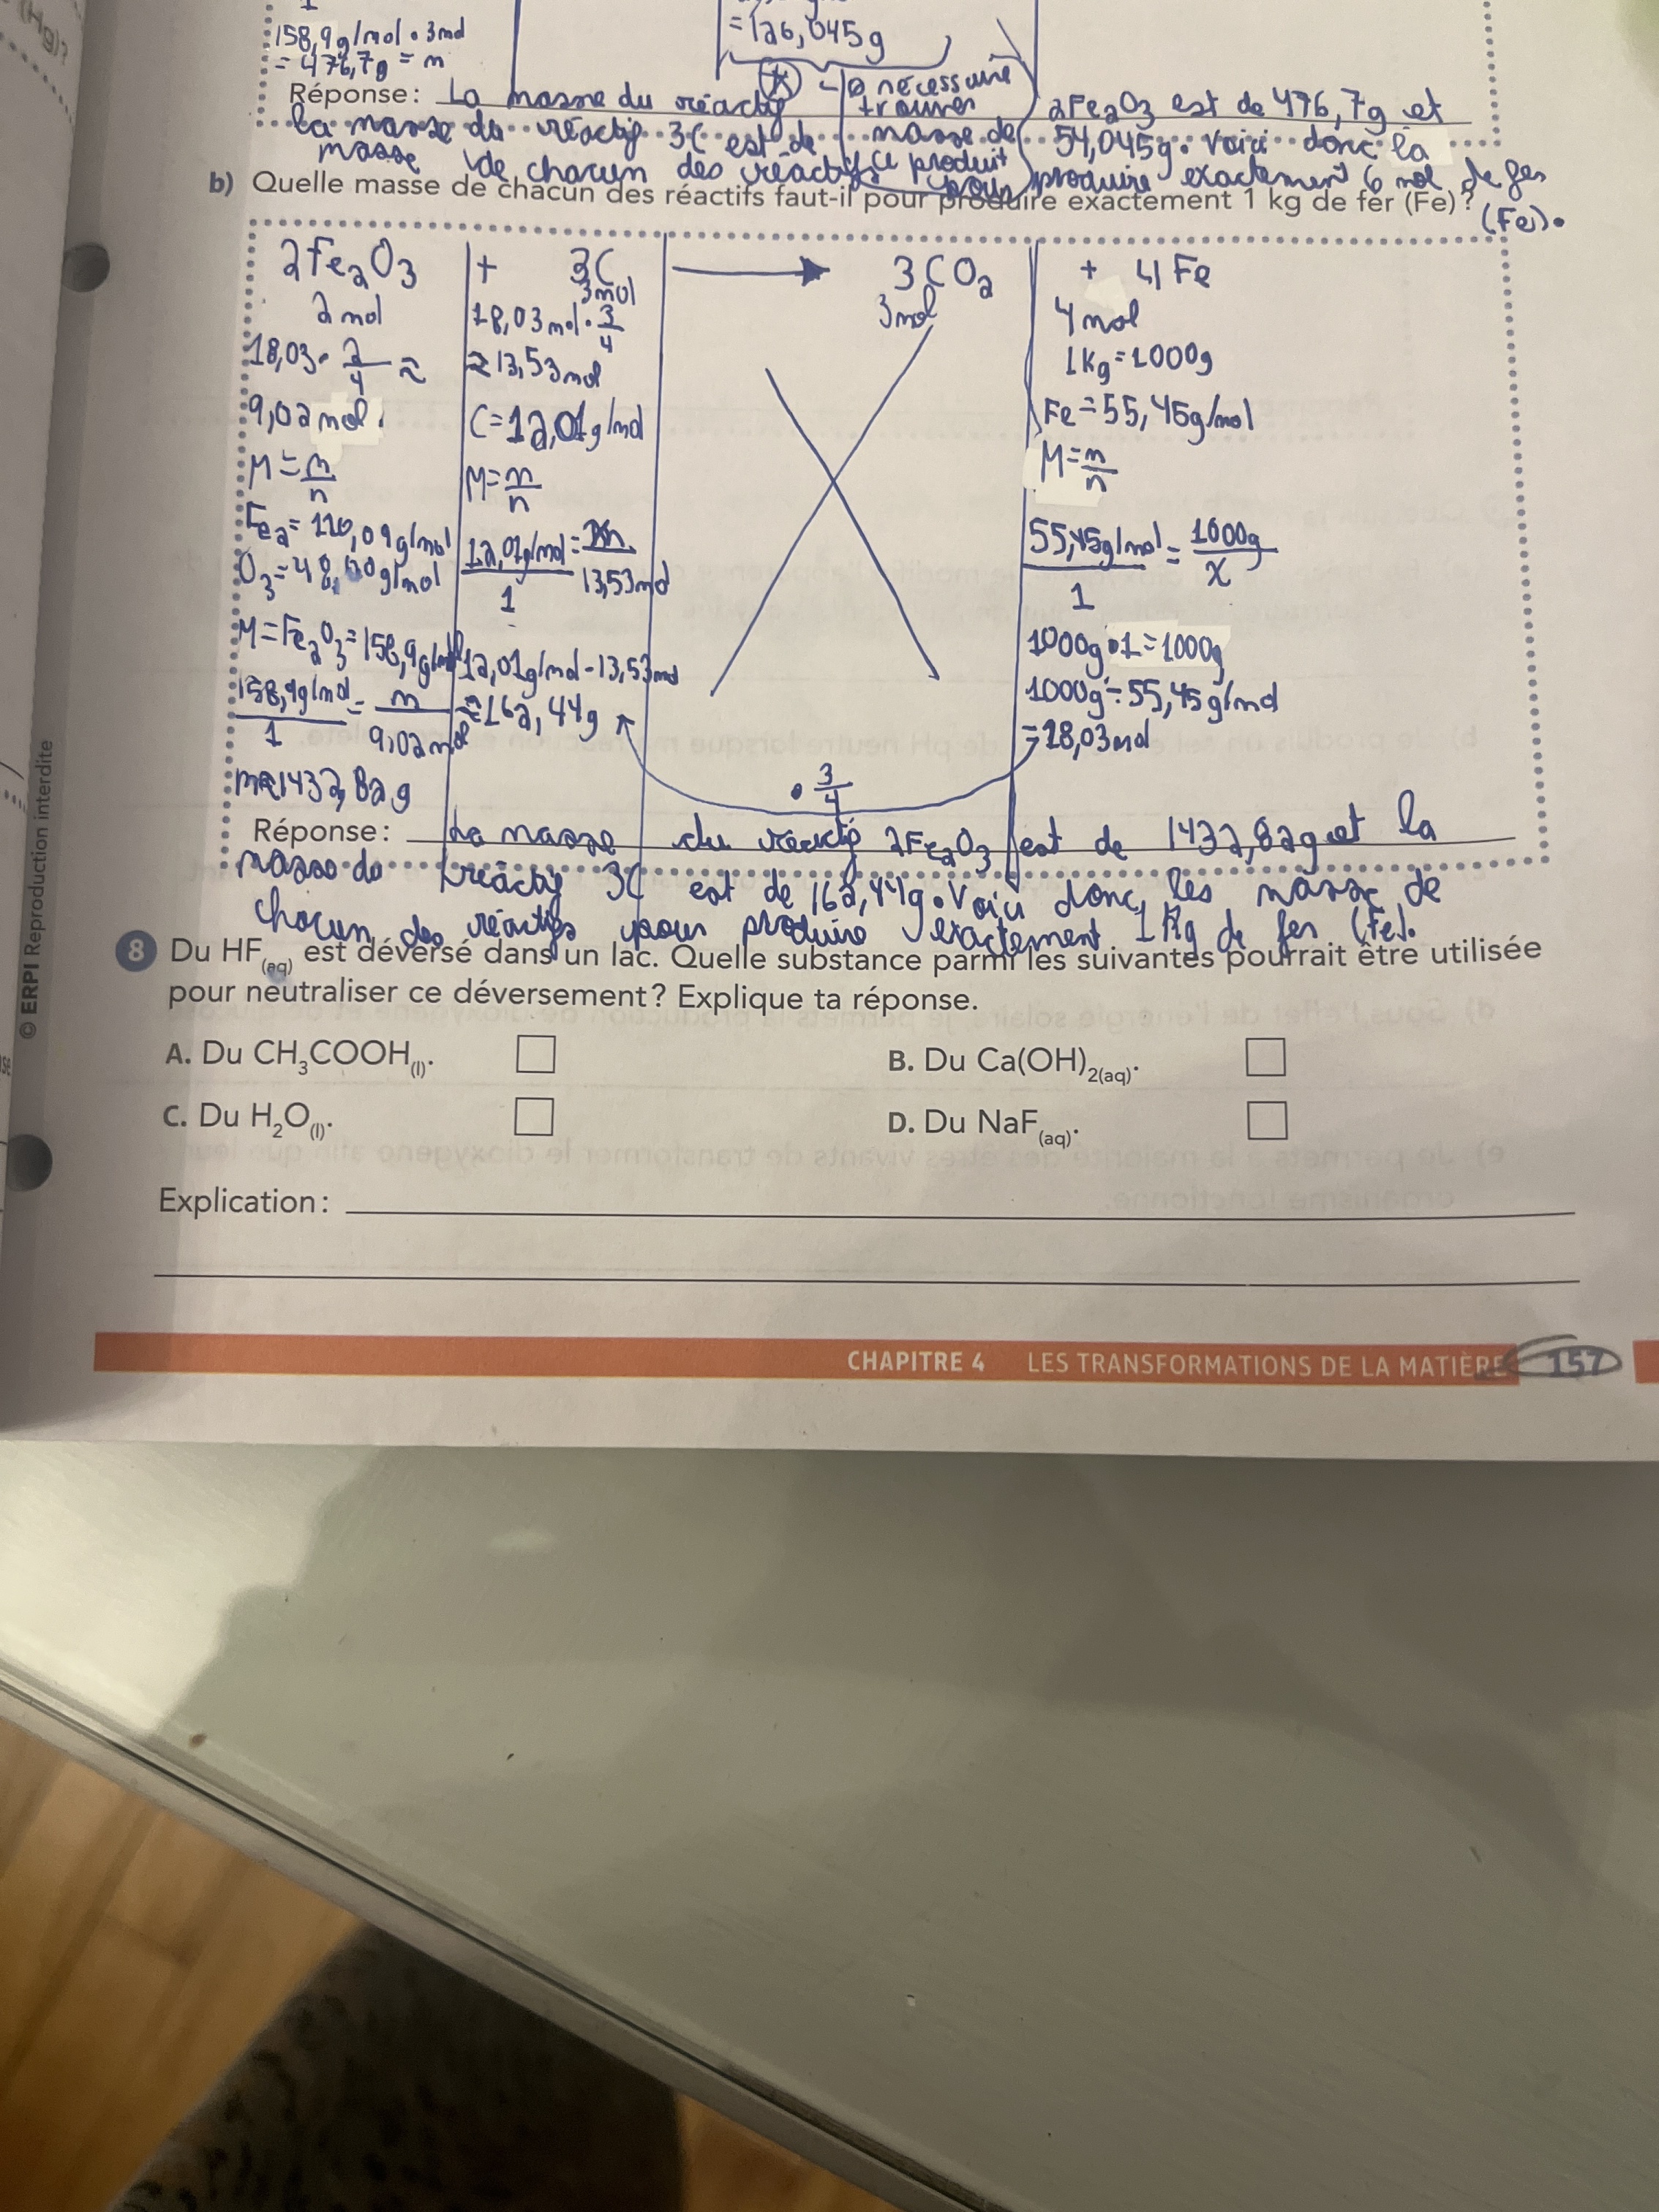 (Hg)?
158,9g/mol • 3mol
= 476,7g = m
= 126,045g
* → Ø nécessaire
trouver
masse de
ce produit
Réponse : La masse du réactif 2Fe2O3 est de 476,7g et
la masse du réactif 3C est de 54,045g. Voici donc la
masse de chacun des réactifs pour produire exactement 6 mol de fer
(Fe).
b) Quelle masse de chacun des réactifs faut-il pour produire exactement 1 kg de fer (Fe) ?
2Fe2O3 + 3C → 3CO2 + 4Fe
2 mol
18,03 • 2/4 ≈
9,02 mol.
M = m/n
Fe2 = 110,09g/mol
O3 = 48,00g/mol
M = Fe2O3 = 158,9g/mol
158,9g/mol / 1 = m / 9,02mol
m≈1432,82g
3mol
18,03mol • 3/4
≈ 13,53mol
C = 12,01g/mol
M = m/n
12,01g/mol / 1 = m / 13,53mol
12,01g/mol • 13,53mol
≈ 162,44g
3mol
• 3/4
4mol
1Kg = 1000g
Fe = 55,45g/mol
M = m/n
55,45g/mol / 1 = 1000g / x
1000g • 1 = 1000g
1000g ÷ 55,45g/mol
= 18,03mol
Réponse : La masse du réactif 2Fe2O3 est de 1432,82g et la
masse du réactif 3C est de 162,44g. Voici donc les masse de
chacun des réactifs pour produire exactement 1Kg de fer (Fe).
8 Du HF(aq) est déversé dans un lac. Quelle substance parmi les suivantes pourrait être utilisée
pour neutraliser ce déversement ? Explique ta réponse.
A. Du CH3COOH(l).
B. Du Ca(OH)2(aq).
C. Du H2O(l).
D. Du NaF(aq).
Explication :
CHAPITRE 4 LES TRANSFORMATIONS DE LA MATIÈRE 157
© ERPI Reproduction interdite